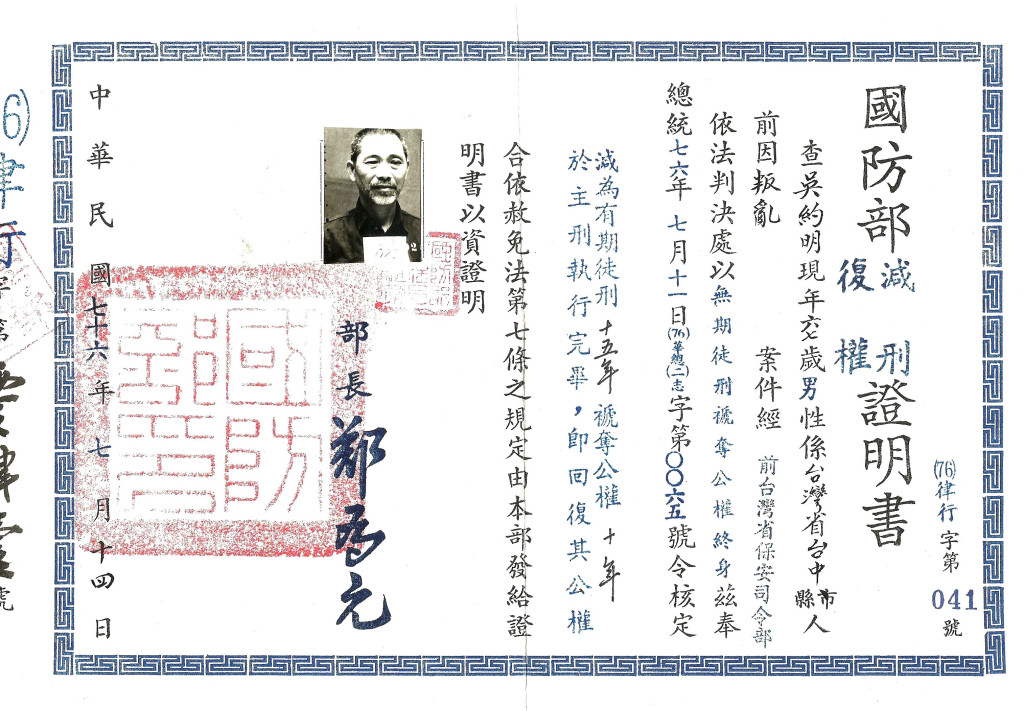 國防部減刑復權證明書
(76)律行字第
041
號
查吳約明現年六七歲男性係台灣省台中縣市人
前因叛亂案件經前台灣省保安司令部
依法判決處以無期徒刑褫奪公權終身茲奉
總統七六年七月十一日(76)華總(二)志字第〇〇六五號令核定
減為有期徒刑十五年褫奪公權十年
於主刑執行完畢，即回復其公權
合依赦免法第七條之規定由本部發給證
明書以資證明
部長鄭為元
中華民國七十六年七月十四日
國防部印
6)律行字第
號